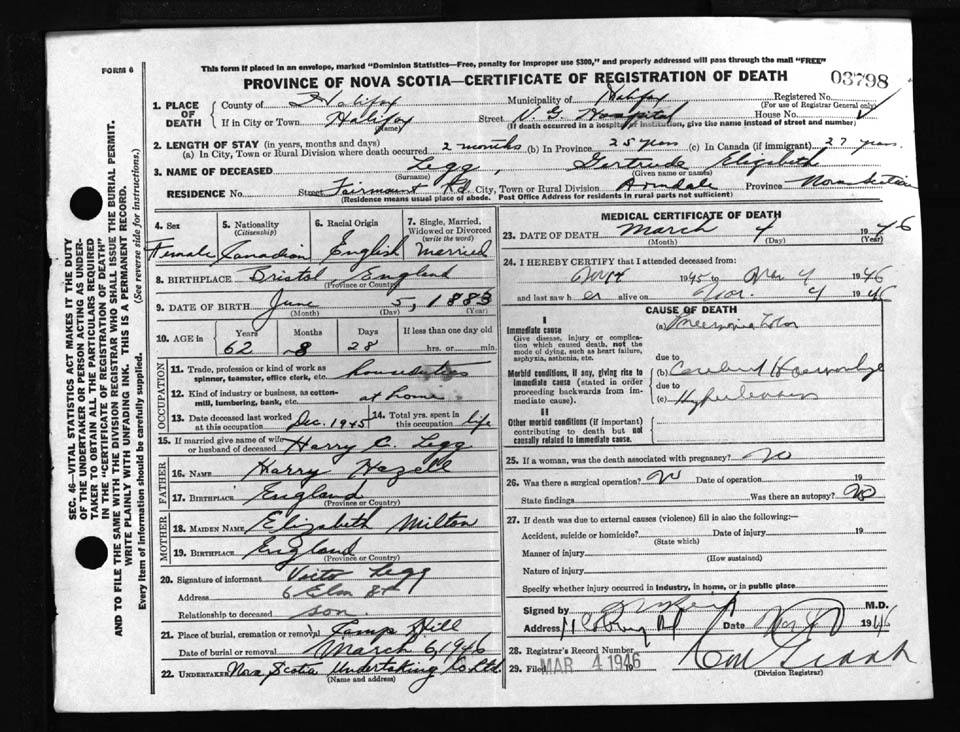 This form if placed in an envelope, marked "Dominion Statistics—Free, penalty for improper use $300," and properly addressed will pass through the mail "FREE"
FORM 6
PROVINCE OF NOVA SCOTIA—CERTIFICATE OF REGISTRATION OF DEATH
03798
1. PLACE OF DEATH
County of Halifax Municipality of Halifax Registered No.
(For use of Registrar General only)
If in City or Town Halifax Street V. G. Hospital House No.
(Name) (If death occurred in a hospital or institution, give the name instead of street and number)
2. LENGTH OF STAY (in years, months and days)
(a) In City, Town or Rural Division where death occurred 2 months (b) In Province 25 years (c) In Canada (if immigrant) 27 years.
3. NAME OF DECEASED Legg, Gertrude Elizabeth
(Surname) (Given name or names)
RESIDENCE No. Street Fairmount Rd. City, Town or Rural Division Armdale Province Nova Scotia
(Residence means usual place of abode. Post Office Address for residents in rural parts not sufficient)
4. Sex Female
5. Nationality (Citizenship) Canadian
6. Racial Origin English
7. Single, Married, Widowed or Divorced (write the word) Married
8. BIRTHPLACE Bristol England
(Province or Country)
9. DATE OF BIRTH June 5, 1883
(Month) (Day) (Year)
10. AGE in Years Months Days If less than one day old
62 8 28 hrs. or min.
OCCUPATION
11. Trade, profession or kind of work as spinner, teamster, office clerk, etc. houseduties
12. Kind of industry or business, as cotton-mill, lumbering, bank, etc. at home
13. Date deceased last worked at this occupation Dec. 1945
14. Total yrs. spent in this occupation life
15. If married give name of wife or husband of deceased Harry C. Legg
FATHER
16. NAME Harry Hazell
17. BIRTHPLACE England
(Province or Country)
MOTHER
18. MAIDEN NAME Elizabeth Milton
19. BIRTHPLACE England
(Province or Country)
20. Signature of informant Legg
Address 6 Elm St
Relationship to deceased son.
21. Place of burial, cremation or removal Camp Hill
Date of burial or removal March 6, 1946
22. UNDERTAKER Nova Scotia Undertaking Co. Ltd.
(Name and address)
MEDICAL CERTIFICATE OF DEATH
23. DATE OF DEATH March 4 1946
(Month) (Day) (Year)
24. I HEREBY CERTIFY that I attended deceased from:
1945 to Mar 4 1946
and last saw her alive on Mar. 4 1946
CAUSE OF DEATH
I
Immediate cause
Give disease, injury or complication which caused death, not the mode of dying, such as heart failure, asphyxia, asthenia, etc.
(a)
due to
Morbid conditions, if any, giving rise to immediate cause (stated in order proceeding backwards from immediate cause).
(b) Cerebral Haemorrhage
due to
(c) Hypertension
II
Other morbid conditions (if important) contributing to death but not causally related to immediate cause.
25. If a woman, was the death associated with pregnancy? No
26. Was there a surgical operation? No Date of operation 19
State findings Was there an autopsy? No
27. If death was due to external causes (violence) fill in also the following:—
Accident, suicide or homicide? Date of injury 19
(State which)
Manner of injury
(How sustained)
Nature of injury
Specify whether injury occurred in industry, in home, or in public place
Signed by M.D.
Address Date 1946
28. Registrar's Record Number
29. Filed MAR 4 1946
(Division Registrar)
SEC. 46—VITAL STATISTICS ACT MAKES IT THE DUTY
OF THE UNDERTAKER OR PERSON ACTING AS UNDER-
TAKER TO OBTAIN ALL THE PARTICULARS REQUIRED
IN THE "CERTIFICATE OF REGISTRATION OF DEATH"
AND TO FILE THE SAME WITH THE DIVISION REGISTRAR WHO SHALL ISSUE THE BURIAL PERMIT.
WRITE PLAINLY WITH UNFADING INK. THIS IS A PERMANENT RECORD.
Every item of information should be carefully supplied. (See reverse side for instructions.)